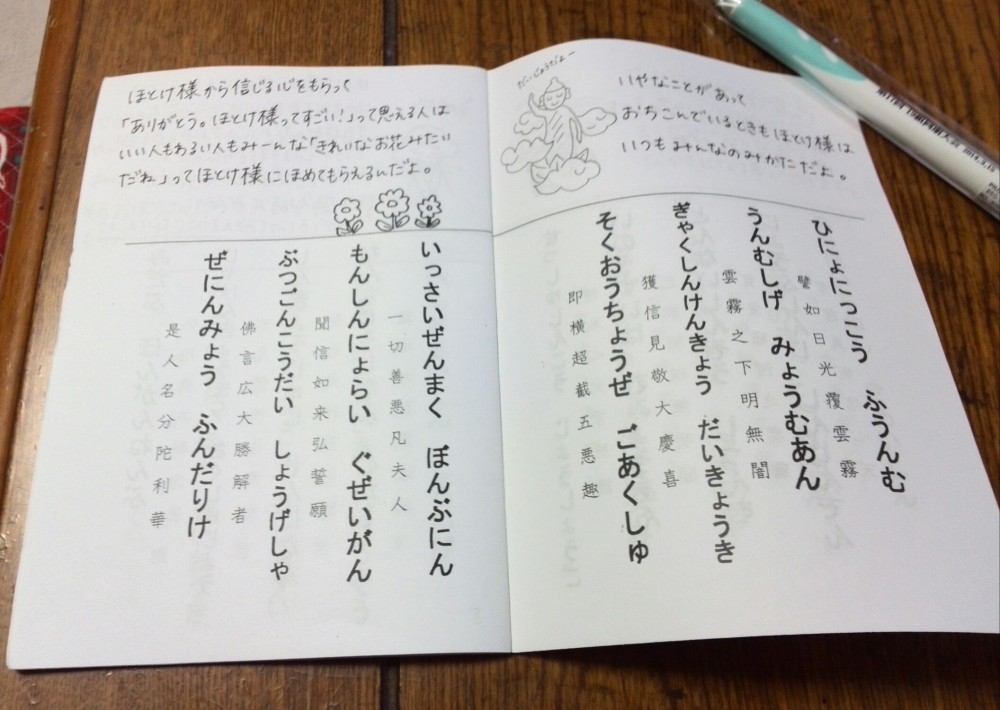 だいじょうぶだよー
いやなことがあって
おちこんでいるときもほとけ様は
いつもみんなのみかただよ。
ひにょにっこう　ふうんむ
譬如日光覆雲霧
うんむしげ　みょうむあん
雲霧之下明無闇
ぎゃくしんけんきょう　だいきょうき
獲信見敬大慶喜
そくおうちょうぜ　ごあくしゅ
即横超截五悪趣
ほとけ様から信じる心をもらって
「ありがとう。ほとけ様ってすごい!」って思える人は
いい人もわるい人もみーんな「きれいなお花みたい
だね」ってほとけ様にほめてもらえるんだよ。
いっさいぜんまく　ぼんぶにん
一切善悪凡夫人
もんしんにょらい　ぐぜいがん
聞信如来弘誓願
ぶつごんこうだい　しょうげしゃ
佛言広大勝解者
ぜにんみょう　ふんだりけ
是人名分陀利華